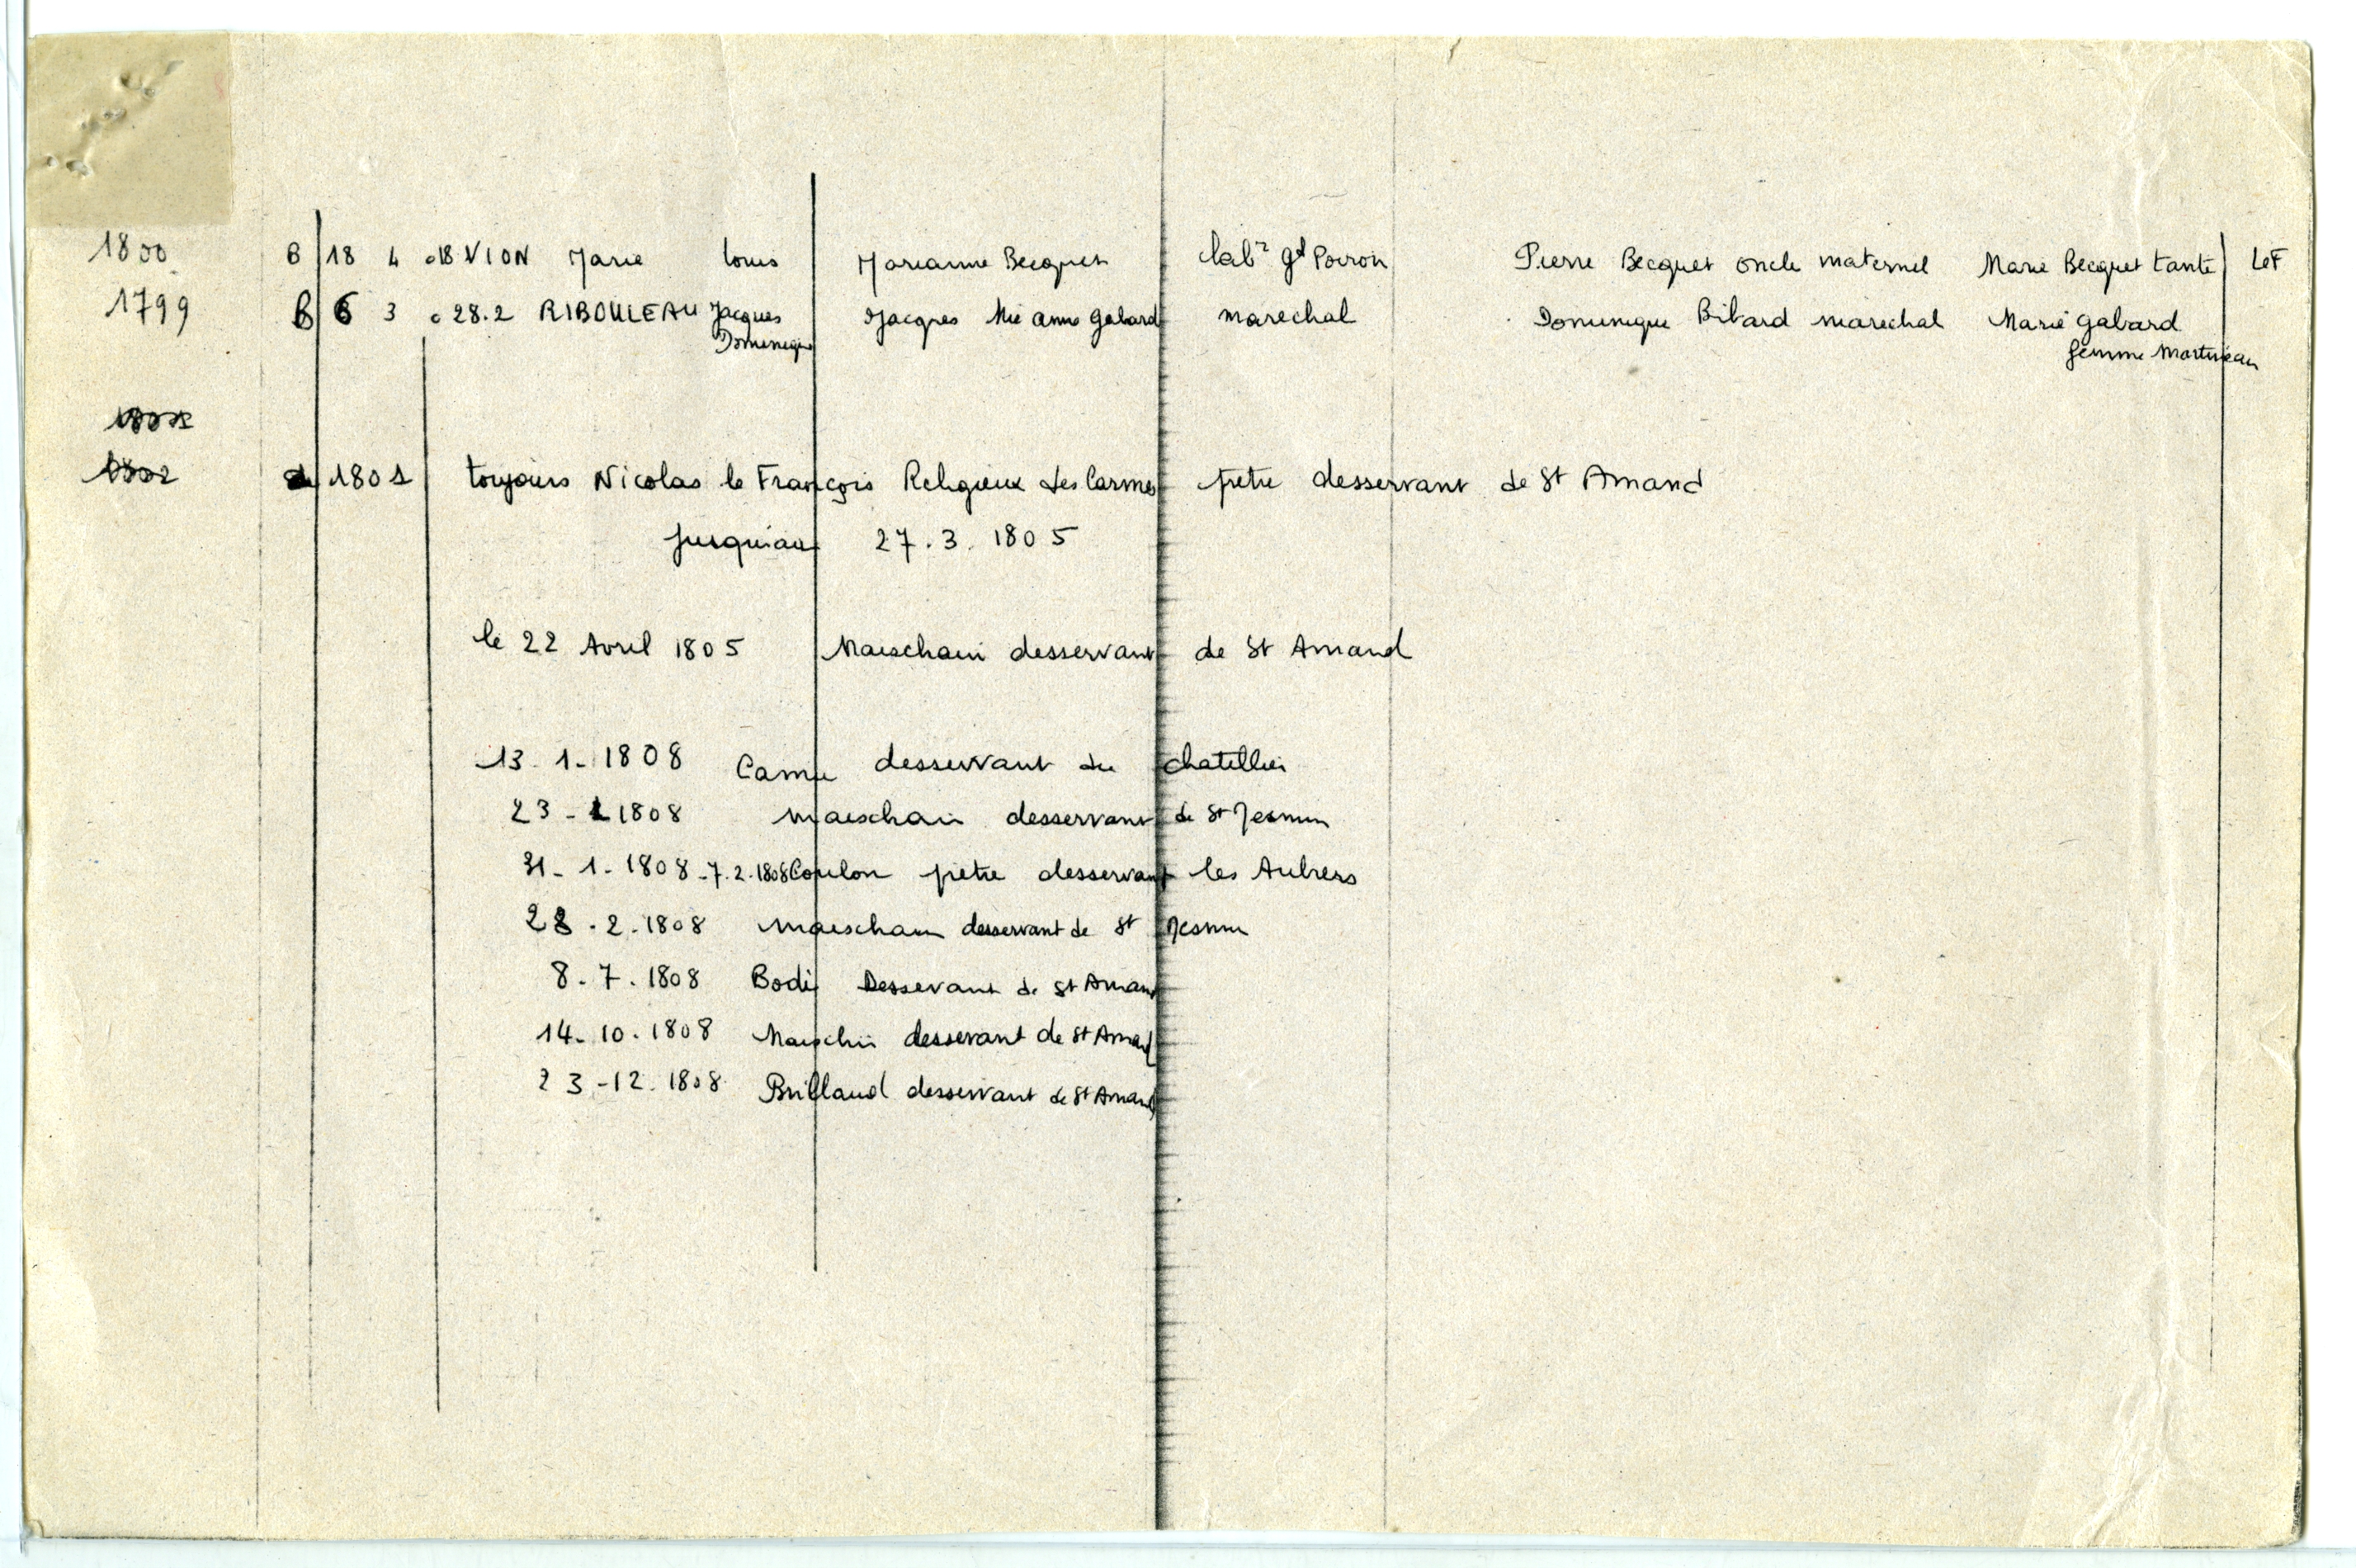 1800 B 18 4 o 18 VION Marie Louis Marianne Becquet labr gd Poiron Pierre Becquet oncle maternel Marie Becquet tante LeF
1799 B 6 3 o 28.2 RIBOULEAU Jacques Jacques Mie anne Gabard marechal Dominique Bibard marechal Marie Gabard
Dominique femme Martineau
1801
1802 1801 toujours Nicolas le François Religieux des Carmes pretre desservant de St Amand
jusqu'au 27.3.1805
le 22 Avril 1805 Maischain desservant de St Amand
13.1.1808 Came desservant du chatellier
23-1 1808 maeschain desservant de St Jesmin
31-1.1808-7.2.1808 Coulon pretre desservant les Aubiers
28.2.1808 maeschain desservant de St Jesmin
8.7.1808 Bodi Desservant de St Amand
14-10.1808 desservant de St Amand
23-12.1808 Brillaud desservant de St Amand